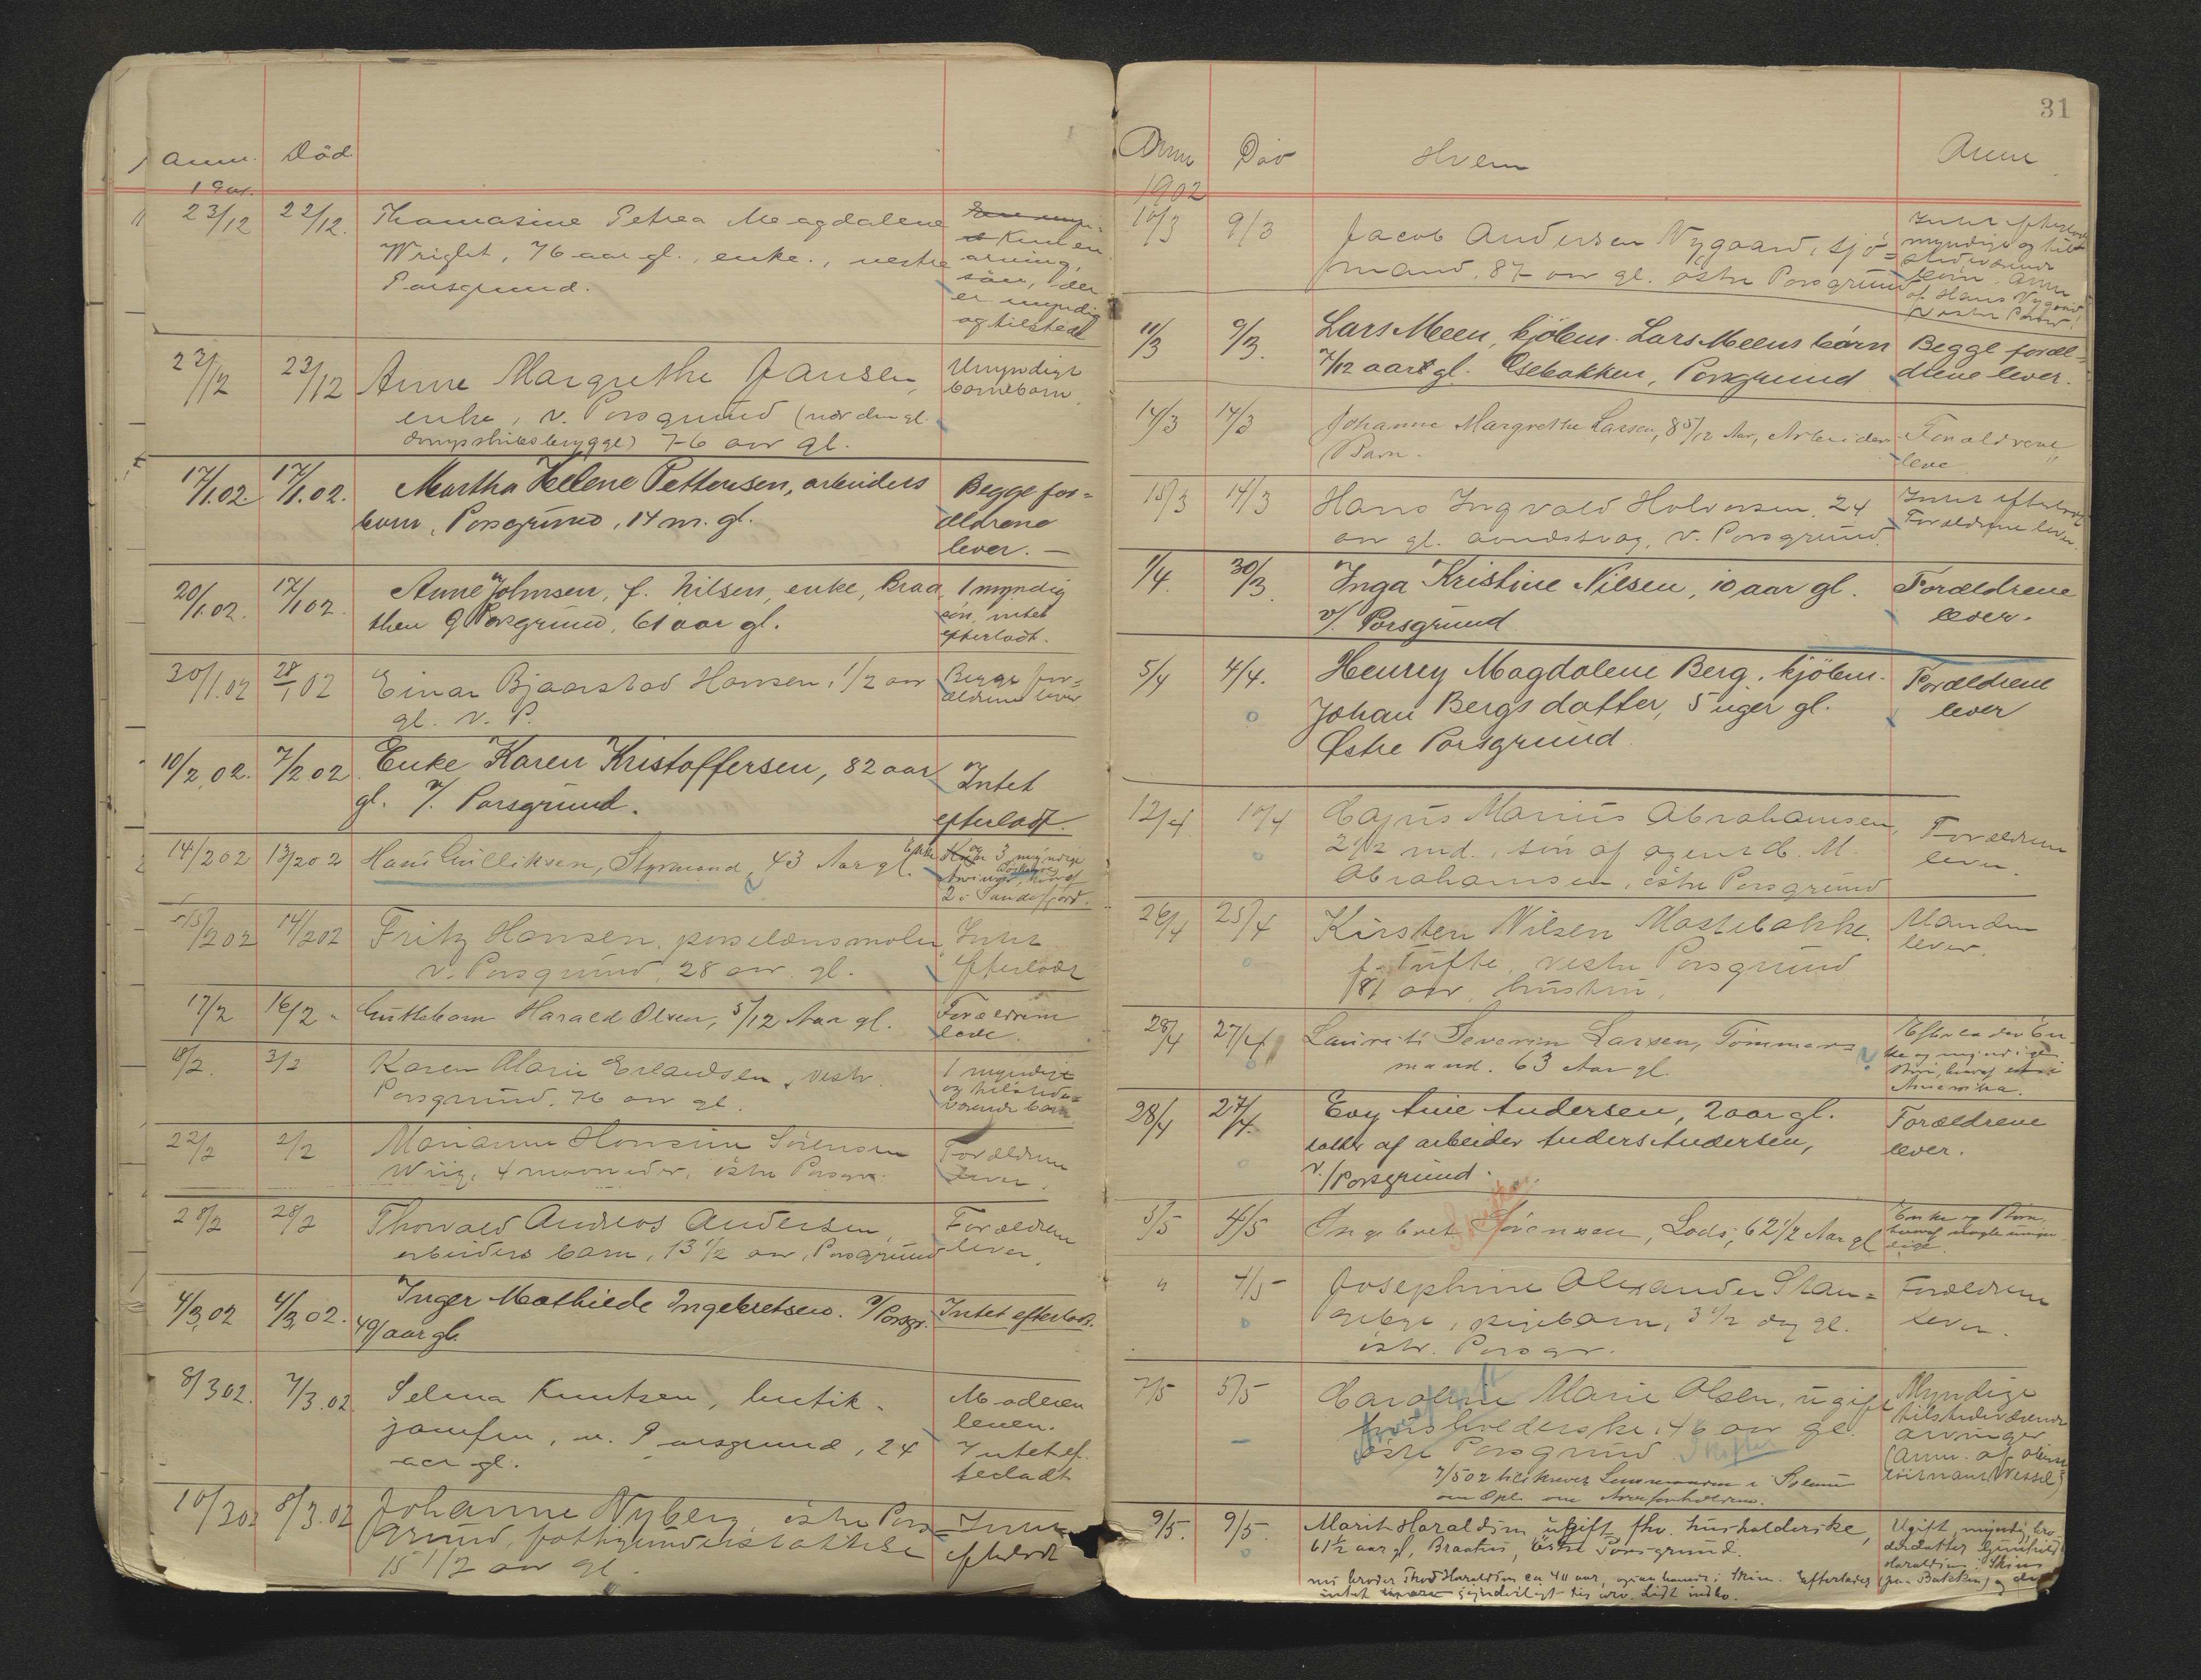 Anm. Död
1901.
23/12 22/12. Thomasine Petrea Magdalene
Wright, 76 aar gl., enke., vestre
Porsgrund.
Kun en
arving,
sön, der
er myndig
og tilstede
23/12 Anne Margrethe Jansen,
enke, v. Porsgrund (nær den gl.
dampskibsbrygge) 76 aar gl.
Umyndige
barnebarn.
17/1.02. 17/1.02. Martha Helene Pettersen, arbeiders
barn, Porsgrund, 14 m. gl.
Begge for=
ældrene
lever. —
20/1.02. 17/1.02. Anne Johnsen, f. Nilsen, enke, Braa
then Porsgrund, 61 aar gl.
1 myndig
sön, intet
efterladt.
30/1.02 28/1.02 Einar Bjaarstad Hansen, 1/2 aar
gl. v. P.
Begge for=
ældrene lever
10/2.02. 7/2 02. Enke Karen Kristoffersen, 82 aar
gl. v/. Porsgrund.
Intet
efterladt.
14/2 02 13/2 02 Hans Gulliksen, Styrmand, 43 Aar gl.
Enke
og 3 myndige
2 i Sandefjord.
15/2 02 14/2 02 Fritz Hansen, porselænsmaler
v. Porsgrund, 28 aar gl.
Intet
efterladt
17/2 16/2 Guttebarn Harald Olsen, 5/12 Aar gl.
Forældrene
leve.
18/2. 3/2 Karen Marie Erlandsen, vestr.
Porsgrund. 76 aar gl.
1 myndigt
og tilstede=
værende barn
22/2 2/2 Marianne Hansine Sörensen
Wiig, 4 maaneder, östre Porsgr.
Forældrene
lever.
28/2 28/2 Thorvald Andreas Andersen,
arbeiders barn, 13 1/2 aar, Porsgrund
Forældrene
lever.
4/3.02 4/3.02. Inger Mathilde Ingebretsen. v/Porsgr.
49 aar gl.
Intet efterladt.
8/3 02. 7/3.02. Selma Knutsen, butik-
jomfru, v. Porsgrund, 24
aar gl.
Moderen
lever.
Intet ef-
terladt
10/3 02 8/3.02 Johanne Nyberg, östre Pors=
grund, fattigunderstöttelse
15 1/2 aar gl.
Intet
efterladt
31
Anm Död Hvem Anm
1902
10/3 9/3 Jacob Andersen Nygaard, sjö=
mand. 87 aar gl. östre Porsgrund
Intet efterladt
myndige og til=
stedeværende
börn. Anm.
af Hans Nygaard
vestre Porsgr.
11/3 9/3. Lars Meen, kjöbm. Lars Meens barn
7/12 aar gl. Osebakken, Porsgrund
Begge foræl=
drene lever.
14/3 14/3 Johanne Margrethe Larsen, 8 5/12 Aar, Arbeider
Barn.
Forældrene
leve.
15/3 14/3 Hans Ingvald Halvorsen. 24
aar gl. aandssvag, v. Porsgrund.
Intet efterladt
Forældrene lever.
1/4. 30/3. Inga Kristine Nilsen, 10 aar gl.
v/. Porsgrund
Forældrene
lever.
5/4 4/4. Henrey Magdalene Berg, kjöbm.
Johan Bergs datter, 5 uger gl.
Östre Porsgrund.
Forældrene
lever
12/4 10/4 Cajus Marius Abrahamsen,
2 1/2 md., sön af agent C. M.
Abrahamsen, östre Porsgrund
Forældrene
lever.
26/4 25/4 Kirsten Nilsen Mastebakke.
f. Tufte, vestre Porsgrund
81 aar, hustru.
Manden
lever.
28/4 27/4 Laurits Severin Larsen, Tömmer=
mand. 63 Aar gl.
Efterlader En-
ke og myndige
Börn, hvoraf
Amerika.
28/4 27/4. Evy Anie Andersen, 2 aar gl.
datter af arbeider Anders Andersen,
v./Porsgrund.
Forældrene
lever.
5/5 4/5 Ingebret Sörensen, Lods, 62 1/2 Aar gl
Skifte
Enke og Börn,
hvoraf nogle umyn-
dige.
" 4/5 Josephine Alexander Stan=
gebye, pigebarn, 3 1/2 dag gl.
östr. Porsgr.
Forældrene
lever.
7/5 5/5 Caroline Marie Olsen, ugift
husholderske, 46 aar gl.
östre Porsgrund. Skifte
7/5 02 tilskrevet Lensmanden i Solum
om Opl. om Arveforholdene.
Myndige
tilstedeværende
arvinger
(Anm. af
Wessel)
9/5. 9/5. Marit Haraldsen, ugift fhv. husholderske,
61 1/2 aar gl, Braaten, Östre Porsgrund.
Ugift, myndig bro-
derdatter Gunhild
Haraldsen i Skien
(paa Bakken) og
en broder Thod Haraldsen ca 40 aar, i Skien. Efterlader
intet lidt indbo.